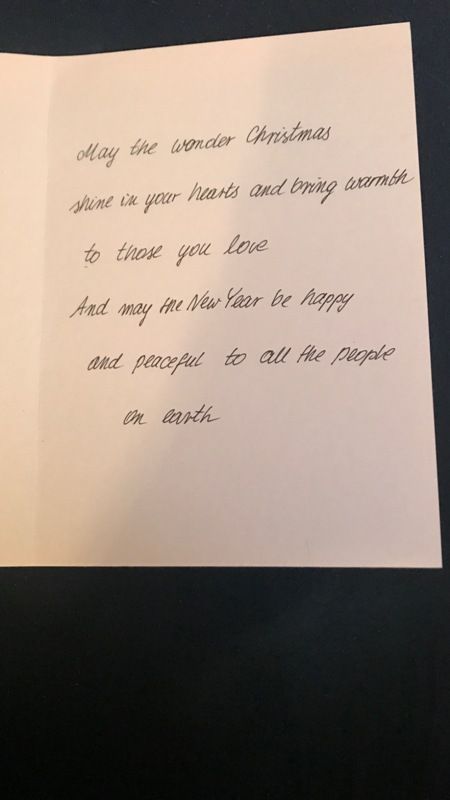 May the wonder Christmas
shine in your hearts and bring warmth
to those you love
And may the New Year be happy
and peaceful to all the people
on earth